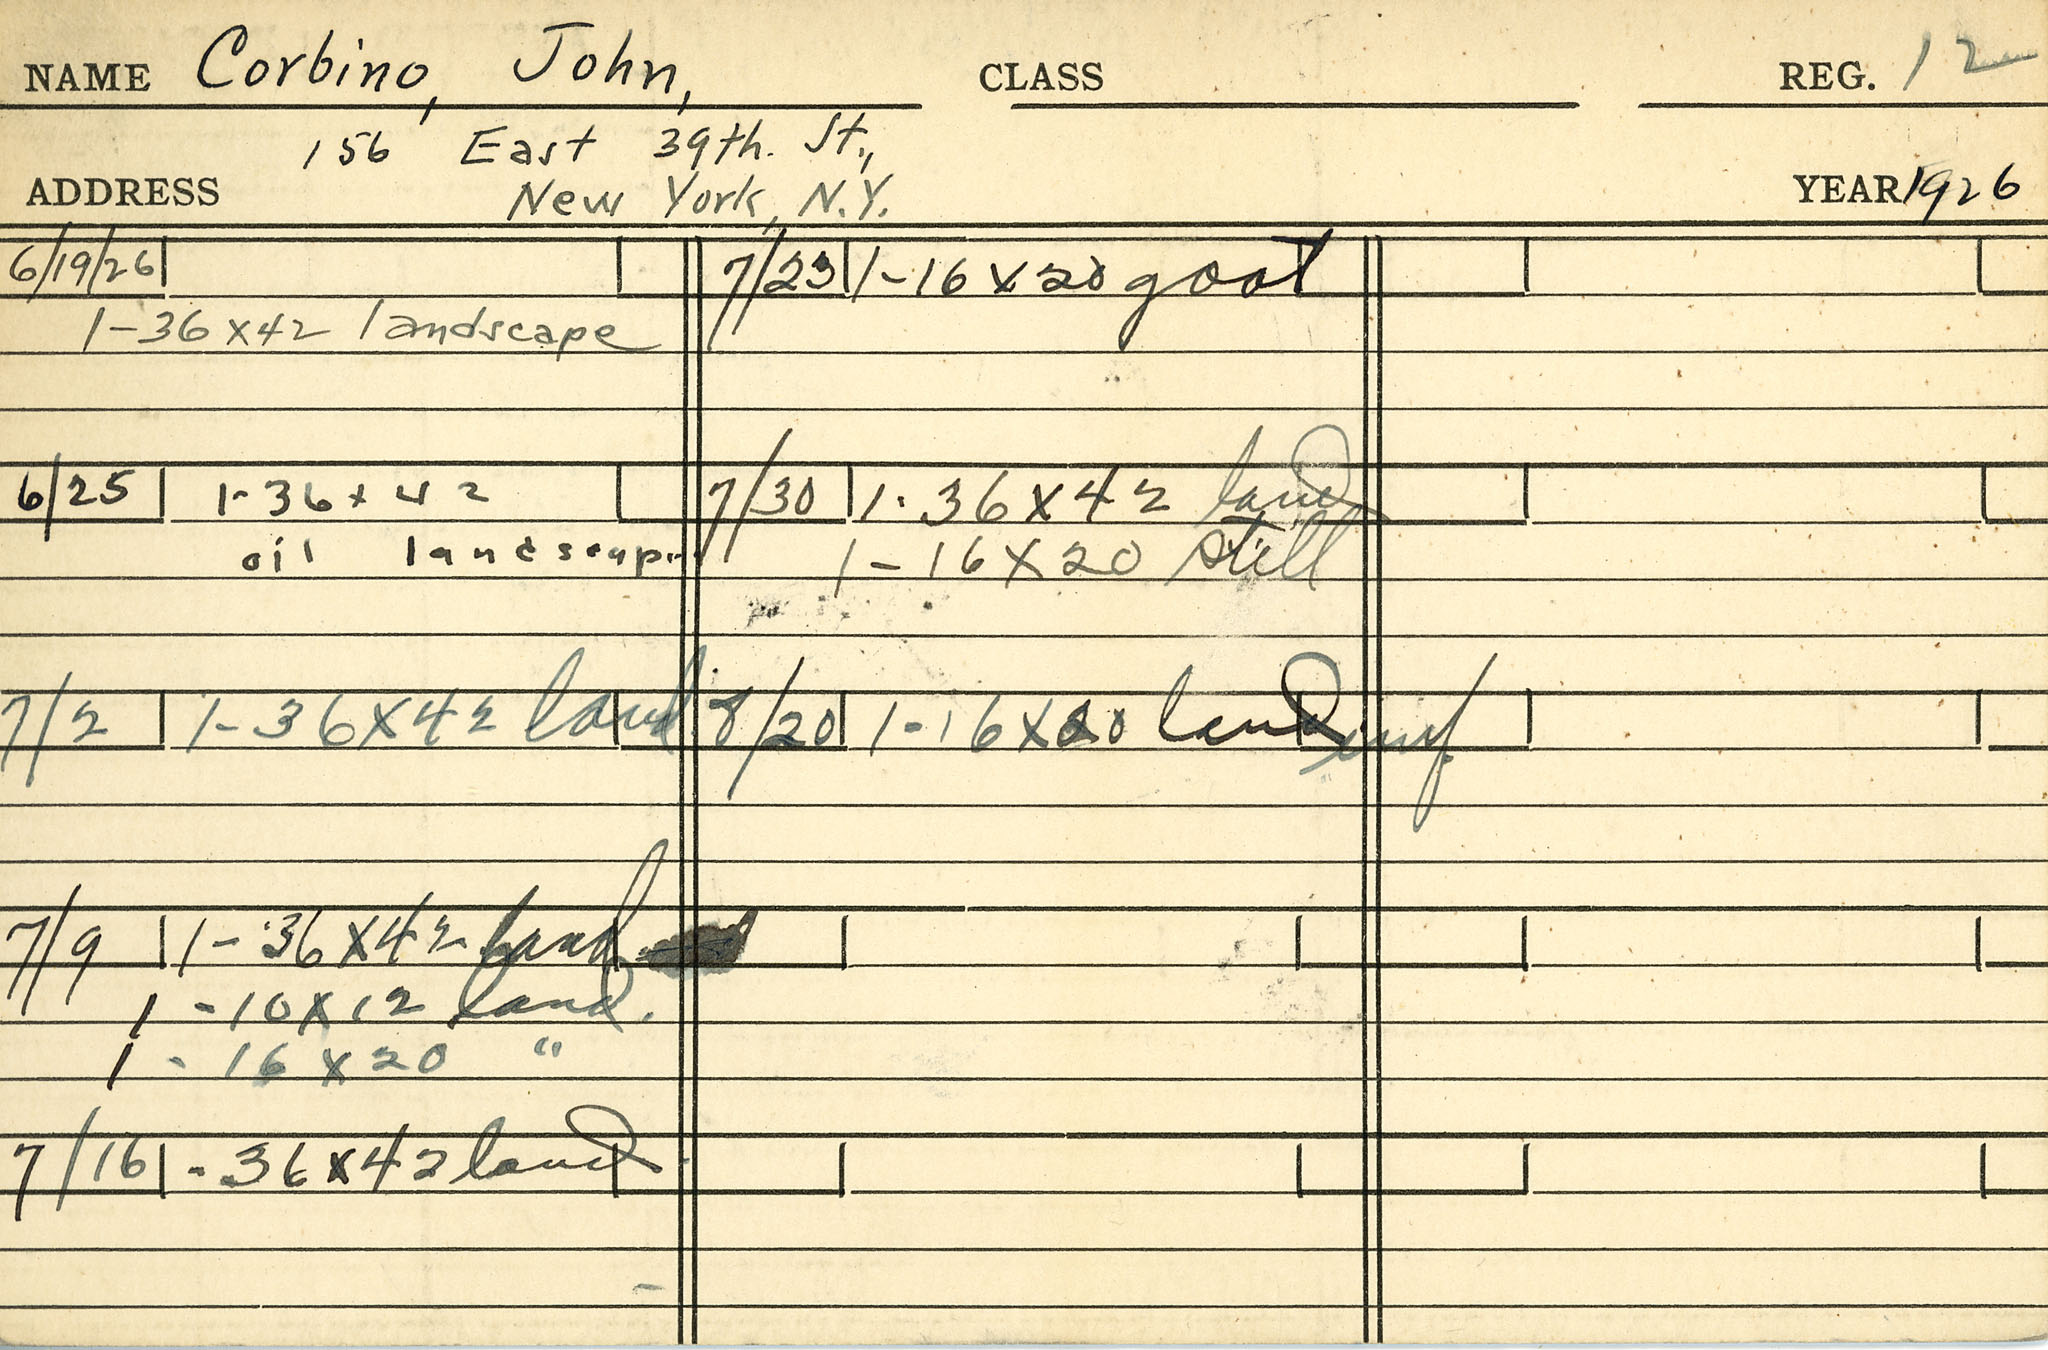 NAME Corbino, John, CLASS REG. 12
156 East 39th. St.,
ADDRESS New York, N.Y. YEAR 1926
6/19/26
1-36x42 landscape
6/25 1-36x42
oil landscape
7/2 1-36x42 land
7/9 1-36x42 land
1-10x12 land.
1-16x20 "
7/16 1-36x42 land
7/23 1-16x20 goat
7/30 1-36x42 land
1-16x20 still
8/20 1-16x20 land